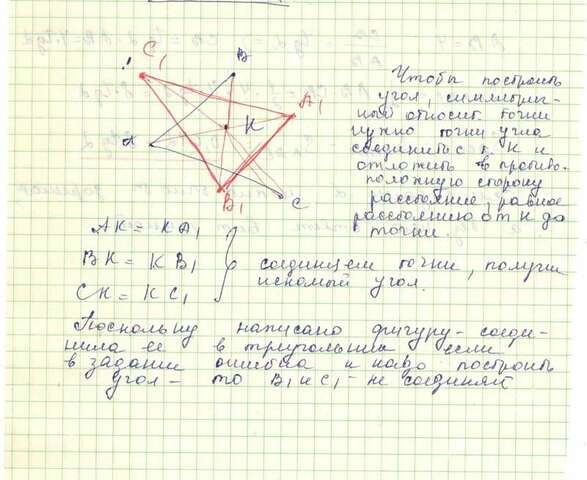 C₁
B
A₁
K
A
B₁
C
Чтобы построить
угол, симметрич-
ный относит. точки
нужно точки угла
соединить с т. К и
отложить в противо-
положную сторону
расстояние, равное
расстоянию от К до
точки.
AK = KA₁
BK = KB₁
CK = KC₁
соединяем точки, получим
искомый угол.
Поскольку написано фигуру - соеди-
нила ее в треугольник если
в задании ошибка и надо построить
угол - то B₁ и C₁ - не соединяй